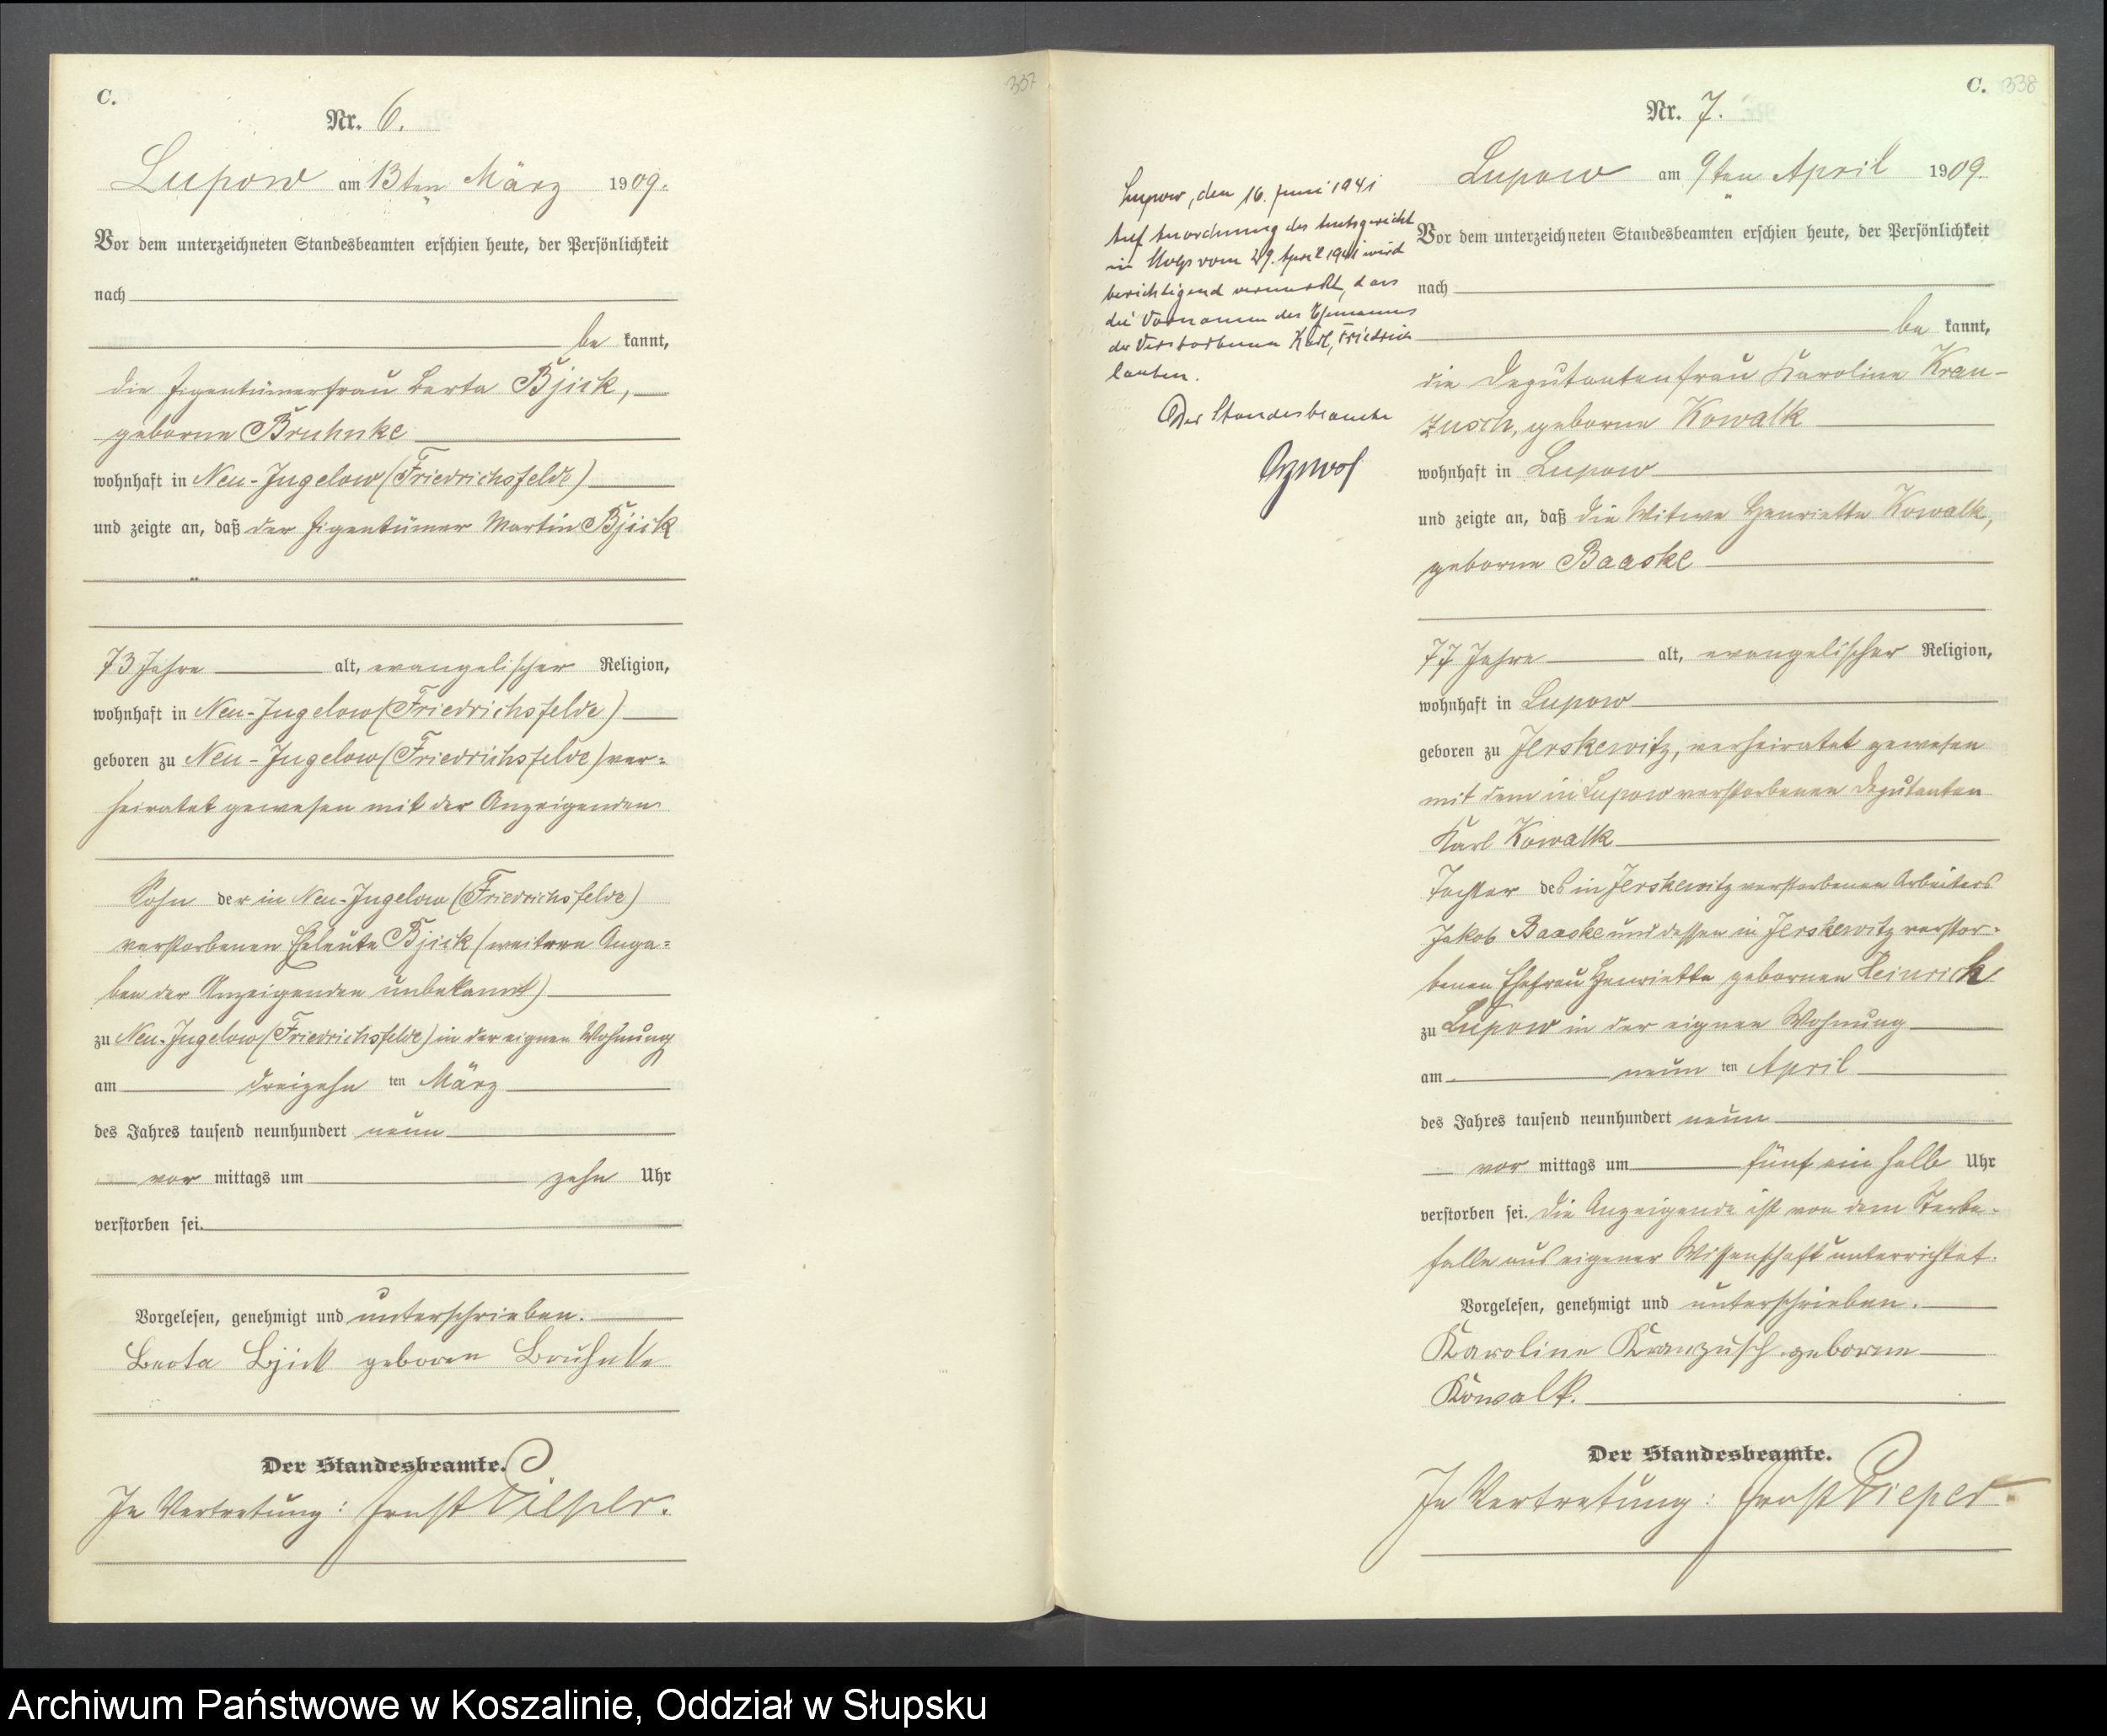 C.
337
Nr. 6.
Lupow am 13ten März 1909.
Vor dem unterzeichneten Standesbeamten erschien heute, der Persönlichkeit
nach
be kannt,
die Eigentümerfrau Berta Bjick,
geborne Bruhnke
wohnhaft in Neu-Jugelow (Friedrichsfelde)
und zeigte an, daß der Eigentümer Martin Bjick
73 Jahre alt, evangelischer Religion,
wohnhaft in Neu-Jugelow (Friedrichsfelde)
geboren zu Neu-Jugelow (Friedrichsfelde) ver=
heiratet gewesen mit der Anzeigenden
Sohn der in Neu-Jugelow (Friedrichsfelde)
verstorbenen Eheleute Bjick (weitere Anga=
ben der Anzeigenden unbekannt)
zu Neu-Jugelow (Friedrichsfelde) in der eignen Wohnung
am dreizehn ten März
des Jahres tausend neunhundert neun
vor mittags um zehn Uhr
verstorben sei.
Vorgelesen, genehmigt und unterschrieben.
Berta Bjick geboren Bruhnke
Der Standesbeamte.
In Vertretung: Ernst Pieper.
C. 338
Nr. 7.
Lupow am 9ten April 1909.
Lupow, den 16. Juni 1941
Auf Anordnung des Amtsgericht
in Stolp vom 29. April 1941 wird
berichtigend vermerkt, dass
die Vornamen des Ehemannes
der Verstorbenen Karl, Friedrich
lauten.
Der Standesbeamte
Vor dem unterzeichneten Standesbeamten erschien heute, der Persönlichkeit
nach
be kannt,
die Deputantenfrau Karoline Kran-
zusch, geborne Kowalk
wohnhaft in Lupow
und zeigte an, daß die Witwe Henriette Kowalk,
geborne Baaske
77 Jahre alt, evangelischer Religion,
wohnhaft in Lupow
geboren zu Jerskewitz, verheiratet gewesen
mit dem in Lupow verstorbenen Deputanten
Karl Kowalk
Tochter des in Jerskewitz verstorbenen Arbeiters
Jakob Baaske und dessen in Jerskewitz verstor-
benen Ehefrau Henriette gebornen Heinrich
zu Lupow in der eignen Wohnung
am neun ten April
des Jahres tausend neunhundert neun
vor mittags um fünf ein halb Uhr
verstorben sei. Die Anzeigende ist von dem Sterbe-
falle aus eigener Wissenschaft unterrichtet.
Vorgelesen, genehmigt und unterschrieben.
Karoline Kranzusch geborne
Kowalk.
Der Standesbeamte.
In Vertretung: Ernst Pieper.
Archiwum Państwowe w Koszalinie, Oddział w Słupsku